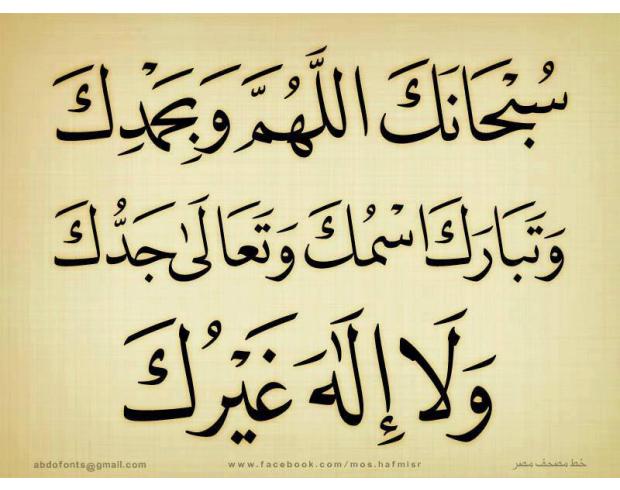 سُبْحَانَكَ اللَّهُمَّ وَبِحَمْدِكَ
وَتَبَارَكَ اسْمُكَ وَتَعَالَىٰ جَدُّكَ
وَلَا إِلَٰهَ غَيْرُكَ
خط مصحف مصر www.facebook.com/mos.hafmisr abdofonts@gmail.com